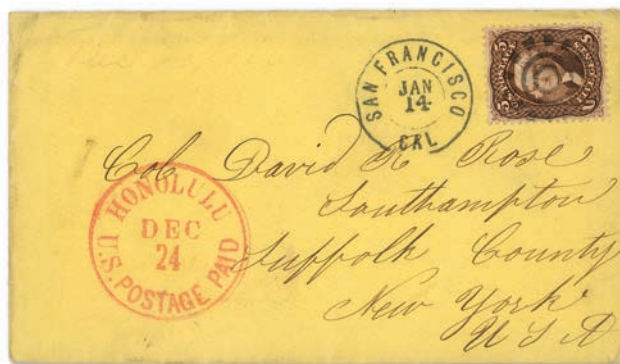 SAN FRANCISCO
JAN
14
CAL
5 5
Col David R Rose
Southampton
Suffolk County
New York
U S A
HONOLULU
DEC
24
U.S. POSTAGE PAID